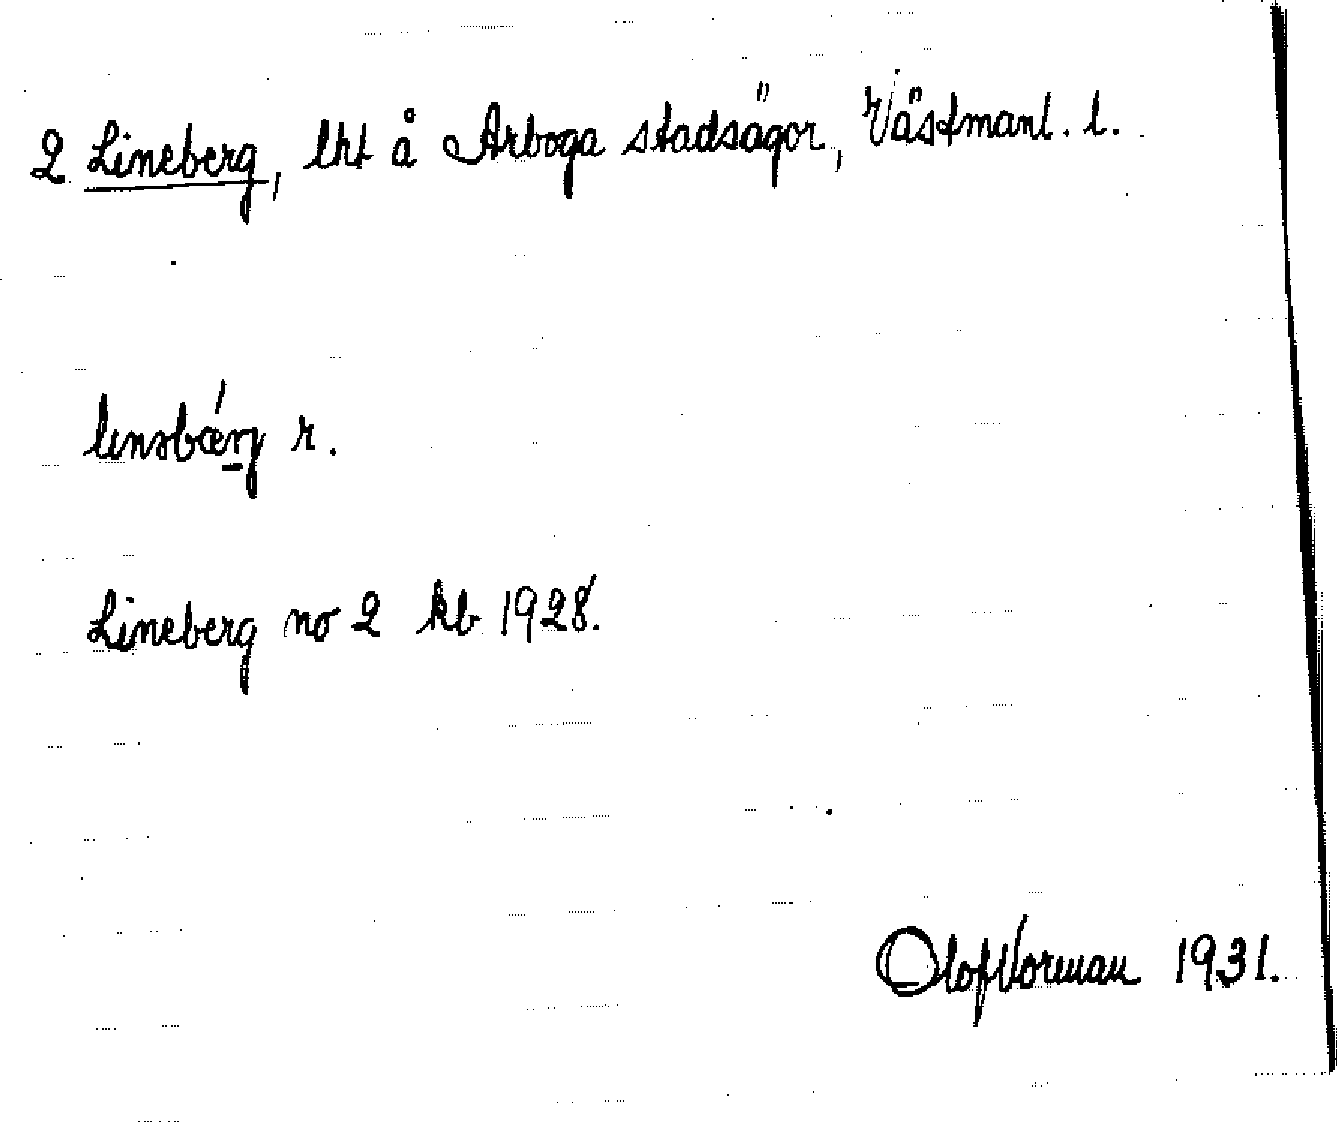 2 Lineberg, lht å Arboga stadsägor, Västmanl. l.
Lineberg no 2 kb 1928.
Olof Vorman 1931.